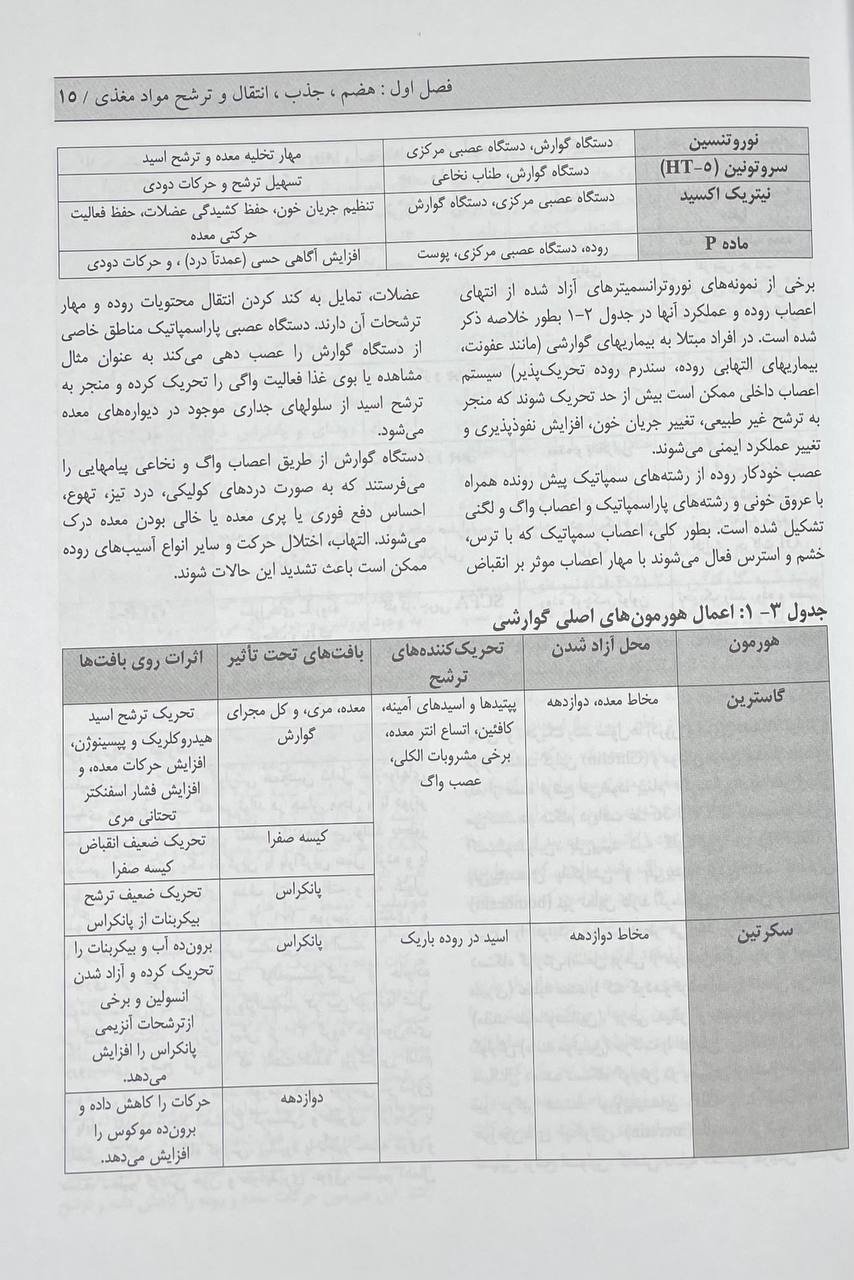 فصل اول : هضم ، جذب ، انتقال و ترشح مواد مغذی / ۱۵
نوروتنسین
دستگاه گوارش، دستگاه عصبی مرکزی
مهار تخلیه معده و ترشح اسید
سروتونین (HT-۵)
دستگاه گوارش، طناب نخاعی
تسهیل ترشح و حرکات دودی
نیتریک اکسید
دستگاه عصبی مرکزی، دستگاه گوارش
تنظیم جریان خون، حفظ کشیدگی عضلات، حفظ فعالیت
حرکتی معده
ماده P
روده، دستگاه عصبی مرکزی، پوست
افزایش آگاهی حسی (عمدتاً درد) ، و حرکات دودی
برخی از نمونه‌های نوروترانسمیترهای آزاد شده از انتهای
اعصاب روده و عملکرد آنها در جدول ۲-۱ بطور خلاصه ذکر
شده است. در افراد مبتلا به بیماریهای گوارشی (مانند عفونت،
بیماریهای التهابی روده، سندرم روده تحریک‌پذیر) سیستم
اعصاب داخلی ممکن است بیش از حد تحریک شوند که منجر
به ترشح غیر طبیعی، تغییر جریان خون، افزایش نفوذپذیری و
تغییر عملکرد ایمنی می‌شوند.
عصب خودکار روده از رشته‌های سمپاتیک پیش رونده همراه
با عروق خونی و رشته‌های پاراسمپاتیک و اعصاب واگ و لگنی
تشکیل شده است. بطور کلی، اعصاب سمپاتیک که با ترس،
خشم و استرس فعال می‌شوند با مهار اعصاب موثر بر انقباض
عضلات، تمایل به کند کردن انتقال محتویات روده و مهار
ترشحات آن دارند. دستگاه عصبی پاراسمپاتیک مناطق خاصی
از دستگاه گوارش را عصب دهی می‌کند به عنوان مثال
مشاهده یا بوی غذا فعالیت واگی را تحریک کرده و منجر به
ترشح اسید از سلولهای جداری موجود در دیواره‌های معده
می‌شود.
دستگاه گوارش از طریق اعصاب واگ و نخاعی پیامهایی را
می‌فرستند که به صورت دردهای کولیکی، درد تیز، تهوع،
احساس دفع فوری یا پری معده یا خالی بودن معده درک
می‌شوند. التهاب، اختلال حرکت و سایر انواع آسیب‌های روده
ممکن است باعث تشدید این حالات شوند.
جدول ۳- ۱: اعمال هورمون‌های اصلی گوارشی
هورمون
محل آزاد شدن
تحریک‌کننده‌های
ترشح
بافت‌های تحت تأثیر
اثرات روی بافت‌ها
گاسترین
مخاط معده، دوازدهه
پپتیدها و اسیدهای آمینه،
کافئین، اتساع انتر معده،
برخی مشروبات الکلی،
عصب واگ
معده، مری، و کل مجرای
گوارش
تحریک ترشح اسید
هیدروکلریک و پپسینوژن،
افزایش حرکات معده، و
افزایش فشار اسفنکتر
تحتانی مری
کیسه صفرا
تحریک ضعیف انقباض
کیسه صفرا
پانکراس
تحریک ضعیف ترشح
بیکربنات از پانکراس
سکرتین
مخاط دوازدهه
اسید در روده باریک
پانکراس
برون‌ده آب و بیکربنات را
تحریک کرده و آزاد شدن
انسولین و برخی
ازترشحات آنزیمی
پانکراس را افزایش
می‌دهد.
دوازدهه
حرکات را کاهش داده و
برون‌ده موکوس را
افزایش می‌دهد.